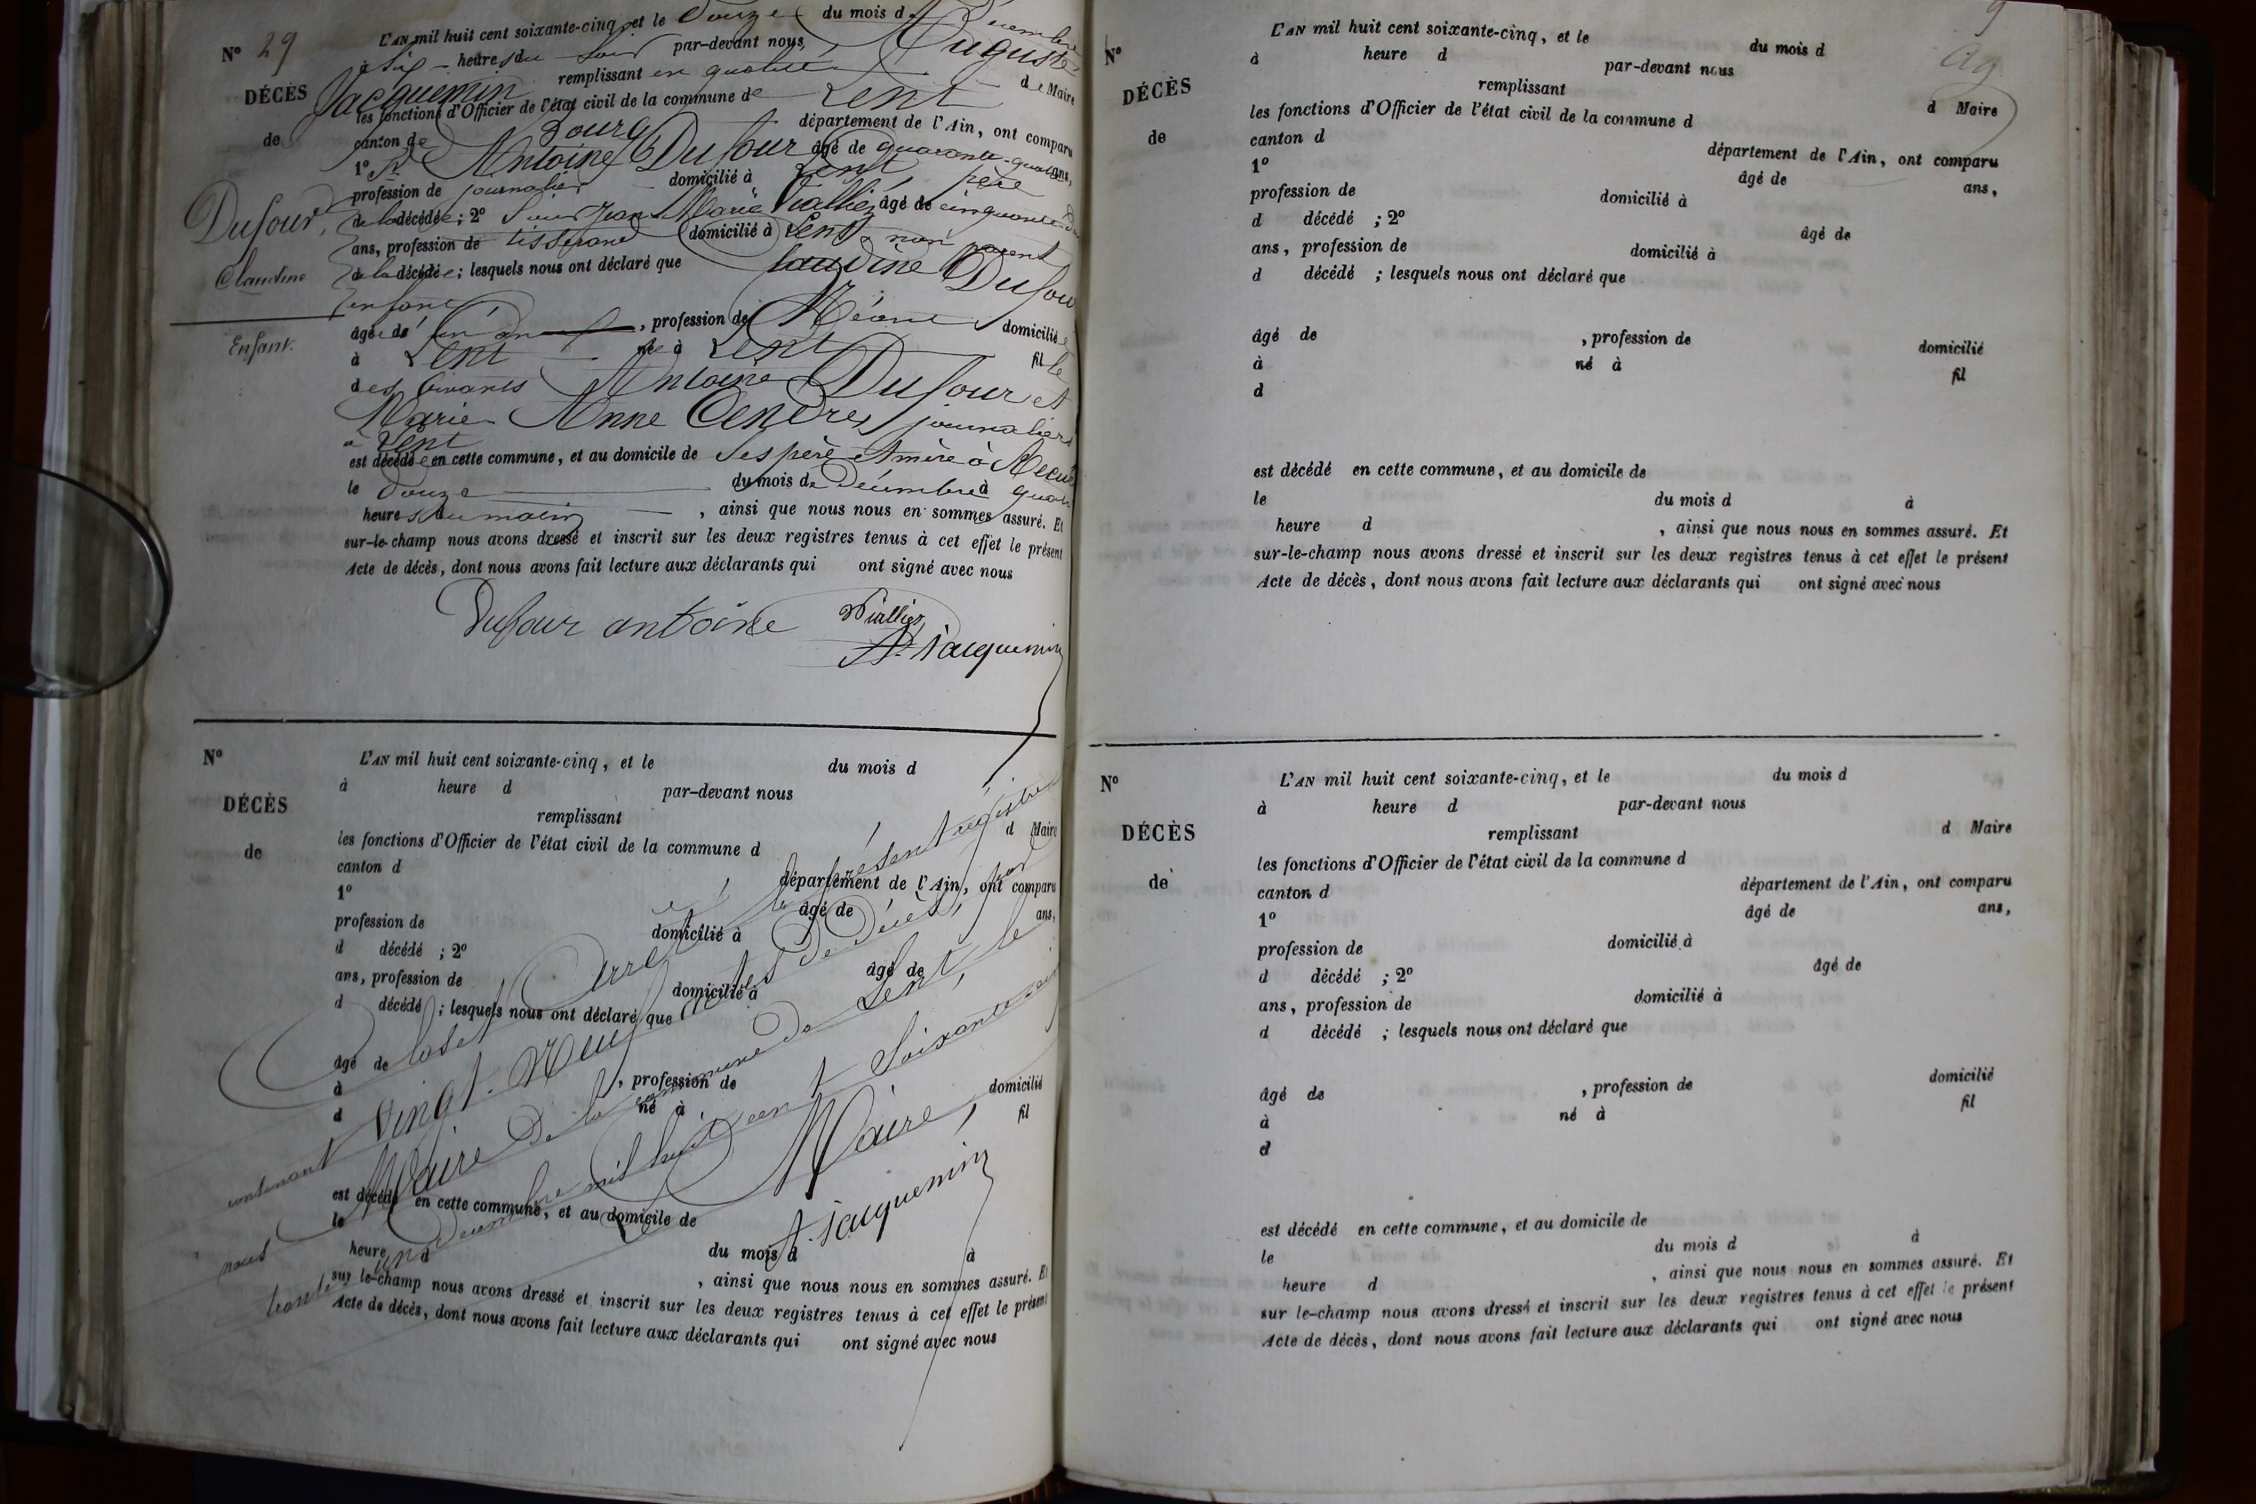 N° 29
DÉCÈS
de
Dufour
Claudine
Enfant.
L'AN mil huit cent soixante-cinq, et le Douze du mois de Décembre
à six heure du soir par-devant nous Auguste
Jacquemin remplissant en qualité de Maire
les fonctions d'Officier de l'état civil de la commune de Lent
canton de Bourg département de l'Ain, ont comparu
1° Sr Antoine Dufour âgé de quarante-quatre ans,
profession de journalier domicilié à Lent père
de la décédée; 2° Sieur Jean Marie Vialliez âgé de cinquante
ans, profession de tisserand domicilié à Lent non parent
de la décédée; lesquels nous ont déclaré que Claudine Dufour
enfant
âgée de un an, profession de Néant domiciliée
à Lent née à Lent fille
des vivants Antoine Dufour et
Marie Anne Cendre journaliers
à Lent
est décédée en cette commune, et au domicile de ses père et mère à
le Douze du mois de Décembre à quatre
heures du matin, ainsi que nous nous en sommes assuré. Et
sur-le-champ nous avons dressé et inscrit sur les deux registres tenus à cet effet le présent
Acte de décès, dont nous avons fait lecture aux déclarants qui ont signé avec nous
Dufour antoine Vialliez
A. Jacquemin
N°
DÉCÈS
de
L'AN mil huit cent soixante-cinq, et le du mois d
à heure d par-devant nous
remplissant d Maire
les fonctions d'Officier de l'état civil de la commune d
canton d département de l'Ain, ont comparu
1° âgé de ans,
profession de domicilié à
d décédé ; 2° âgé de
ans, profession de domicilié à
d décédé ; lesquels nous ont déclaré que
âgé de , profession de domicilié
à né à fil
d
est décédé en cette commune, et au domicile de
le du mois d à
heure d , ainsi que nous nous en sommes assuré. Et
sur le-champ nous avons dressé et inscrit sur les deux registres tenus à cet effet le présent
Acte de décès, dont nous avons fait lecture aux déclarants qui ont signé avec nous
Clos et arrêté le présent registre
contenant vingt-Neuf actes de Décès, par
nous Maire de la commune de Lent, le
trente un Décembre mil huit cent soixante cinq
Le Maire,
A. Jacquemin
9
N°
DÉCÈS
de
L'AN mil huit cent soixante-cinq, et le du mois d
à heure d par-devant nous
remplissant d Maire
les fonctions d'Officier de l'état civil de la commune d
canton d département de l'Ain, ont comparu
1° âgé de ans,
profession de domicilié à
d décédé ; 2° âgé de
ans, profession de domicilié à
d décédé ; lesquels nous ont déclaré que
âgé de , profession de domicilié
à né à fil
d
est décédé en cette commune, et au domicile de
le du mois d à
heure d , ainsi que nous nous en sommes assuré. Et
sur-le-champ nous avons dressé et inscrit sur les deux registres tenus à cet effet le présent
Acte de décès, dont nous avons fait lecture aux déclarants qui ont signé avec nous
N°
DÉCÈS
de
L'AN mil huit cent soixante-cinq, et le du mois d
à heure d par-devant nous
remplissant d Maire
les fonctions d'Officier de l'état civil de la commune d
canton d département de l'Ain, ont comparu
1° âgé de ans,
profession de domicilié à
d décédé ; 2° âgé de
ans, profession de domicilié à
d décédé ; lesquels nous ont déclaré que
âgé de , profession de domicilié
à né à fil
d
est décédé en cette commune, et au domicile de
le du mois d à
heure d , ainsi que nous nous en sommes assuré. Et
sur le-champ nous avons dressé et inscrit sur les deux registres tenus à cet effet le présent
Acte de décès, dont nous avons fait lecture aux déclarants qui ont signé avec nous